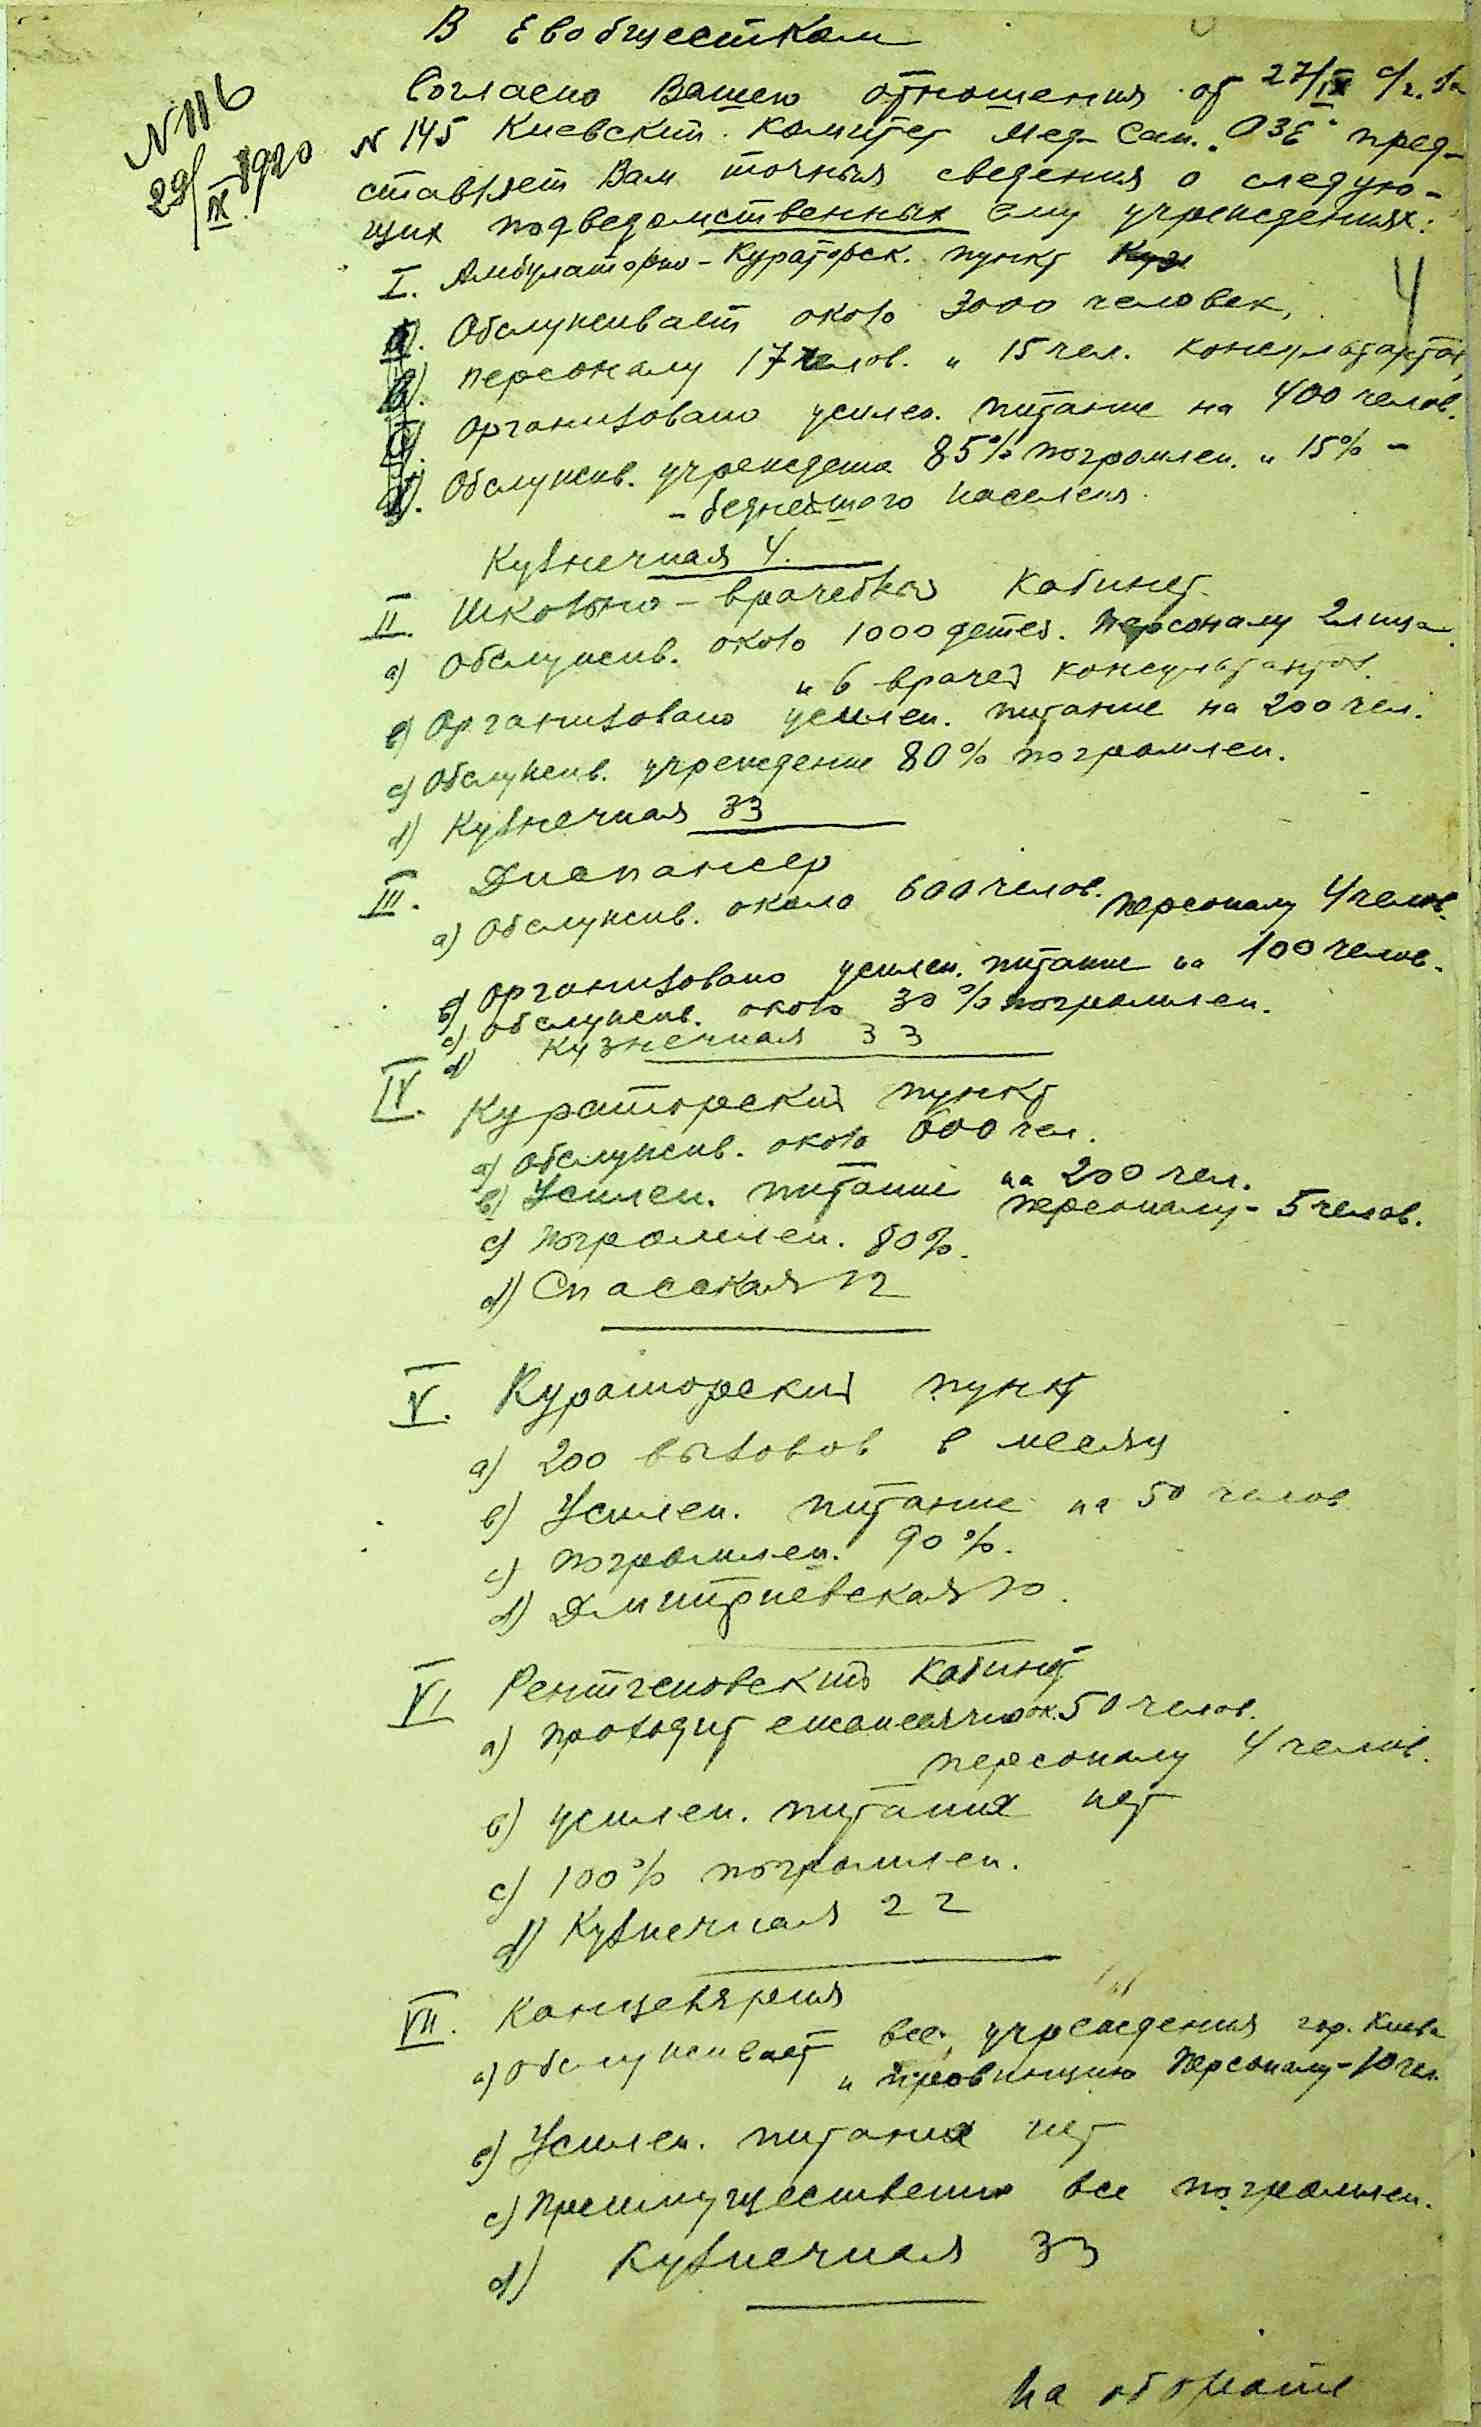 В Евобщестком
N 116
29/IX 1920
Согласно Вашего отношения от 27/IX с/г. за
N 145 Киевский Комитет Мед. Сан. „ОЗЕ" пред-
ставляет Вам точныя сведения о следую-
щих подведомственных ему учреждениях:
4
I. Амбулаторно-Кураторск. пункт Куз
а). Обслуживает около 3000 человек,
в). персоналу 17 челов. и 15 чел. консультантов,
с). Организовано усилен. питание на 400 челов.
d). Обслужив. учреждение 85% погромлен. и 15% -
- беднейшого населения.
Кузнечная 4.
II. Школьно-врачебный Кабинет
а) Обслужив. около 1000 детей. Персоналу 2 лица
и 6 врачей консультантов.
в) Организовано усилен. питание на 200 чел.
с) Обслужив. учреждение 80% погромлен.
d) Кузнечная 33
III. Диспансер
а) Обслужив. около 600 челов. Персоналу 4 челов.
в) Организовано усилен. питание на 100 челов.
с) Обслужив. около 30% погромлен.
d) Кузнечная 33
IV. Кураторский пункт
а) Обслужив. около 600 чел.
в) Усилен. питание на 200 чел.
Персоналу - 5 челов.
с) Погромлен. 80%.
d) Спасская 12
V. Кураторский пункт
а) 200 вызовов в месяц
в) Усилен. питание на 50 челов
с) Погромлен. 90%.
d) Дмитриевская 10.
VI Рентгеновский Кабинет
а) Проходит ежемесячно ок. 50 челов.
персоналу 4 челов.
в) усилен. питания нет
с) 100% погромлен.
d) Кузнечная 22
VII. Канцелярия
а) Обслуживает все учреждения гор. Киева
и провинцию Персоналу - 10 чел.
в) Усилен. питания нет
с) Преимущественно все погромлен.
d) Кузнечная 33
На обороте